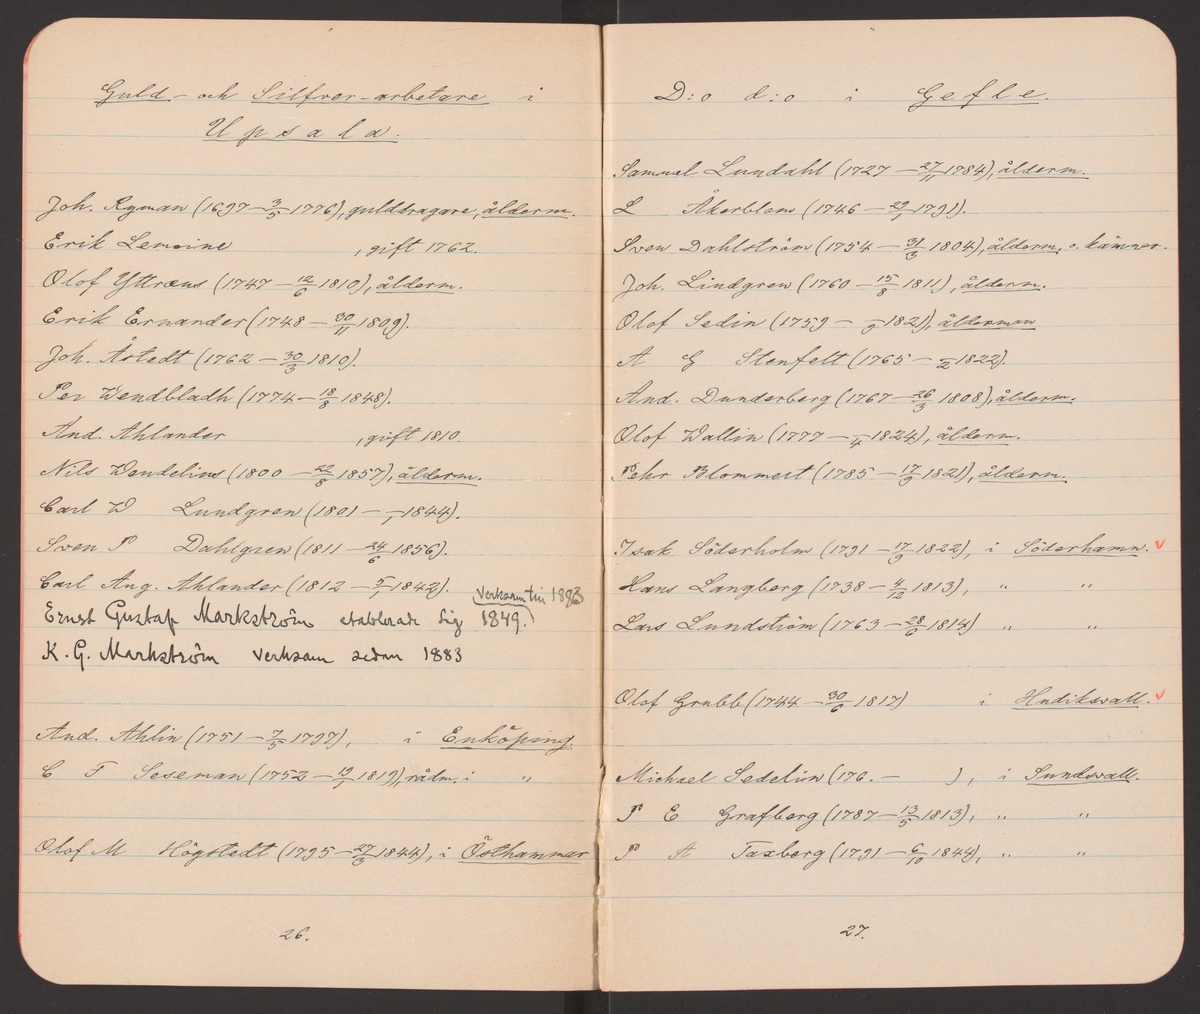 Guld- och Silfver-arbetare i
Upsala.
Joh. Ryman (1697 - 3/5 1776), gulddragare, ålderm.
Erik Lemoine , gift 1762.
Olof Yttræus (1747 - 12/6 1810), ålderm.
Erik Ernander (1748 - 30/11 1809).
Joh. Åstedt (1762 - 30/3 1810).
Per Wendbladh (1774 - 18/8 1848).
And. Ahlander , gift 1810.
Nils Wendelius (1800 - 22/8 1857), ålderm.
Carl W Lundgren (1801 - /1 1844).
Sven P Dahlgren (1811 - 24/6 1856).
Carl Aug. Ahlander (1812 - 5/1 1842).
verksam till 1883
Ernst Gustaf Markström etablerade sig 1849.)
K. G. Markström verksam sedan 1883
And. Ahlin (1751 - 7/5 1797), i Enköping.
C F Seseman (1752 - 19/1 1819), rådm. i "
Olof M Högstedt (1795 - 27/3 1844), i Östhammar
26.
D:o d:o i Gefle.
Samuel Lundahl (1727 - 27/11 1784), ålderm.
L Åkerblom (1746 - 29/1 1791).
Sven Dahlström (1754 - 31/3 1804), ålderm. o. kämner.
Joh. Lindgren (1760 - 15/8 1811), ålderm.
Olof Sedin (1759 - /9 1821), ålderman
A G Stenfelt (1765 - /2 1822).
And. Dunderberg (1767 - 26/3 1808), ålderm.
Olof Wallin (1777 - /4 1824), ålderm.
Pehr Blommert (1785 - 17/9 1821), ålderm.
Isak Söderholm (1791 - 17/9 1822), i Söderhamn. v
Hans Langberg (1738 - 4/12 1813), " "
Lars Lundström (1763 - 28/6 1814) " "
Olof Grubb (1744 - 30/6 1817) i Hudikswall. v
Michael Sedelin (176. - ), i Sundswall.
P E Grafberg (1787 - 13/5 1813), " "
P A Taxberg (1791 - 6/10 1844), " "
27.